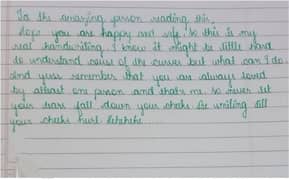 To the amazing person reading this,
Hope you are happy and safe. So this is my
real handwriting. I know it might be little hard
to understand cause of the curves but what can I do.
And yess remember that you are always loved
by atleast on person and thats me. So never let
your tears fall down your cheeks. Be smiling till
your cheeks hurt. Hehehehe